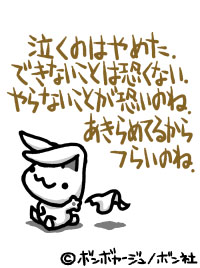 泣くのはやめた.
できないことは恐くない.
やらないことが恐いのね.
あきらめてるから
つらいのね.
©ボンボヤージュ/ボン社